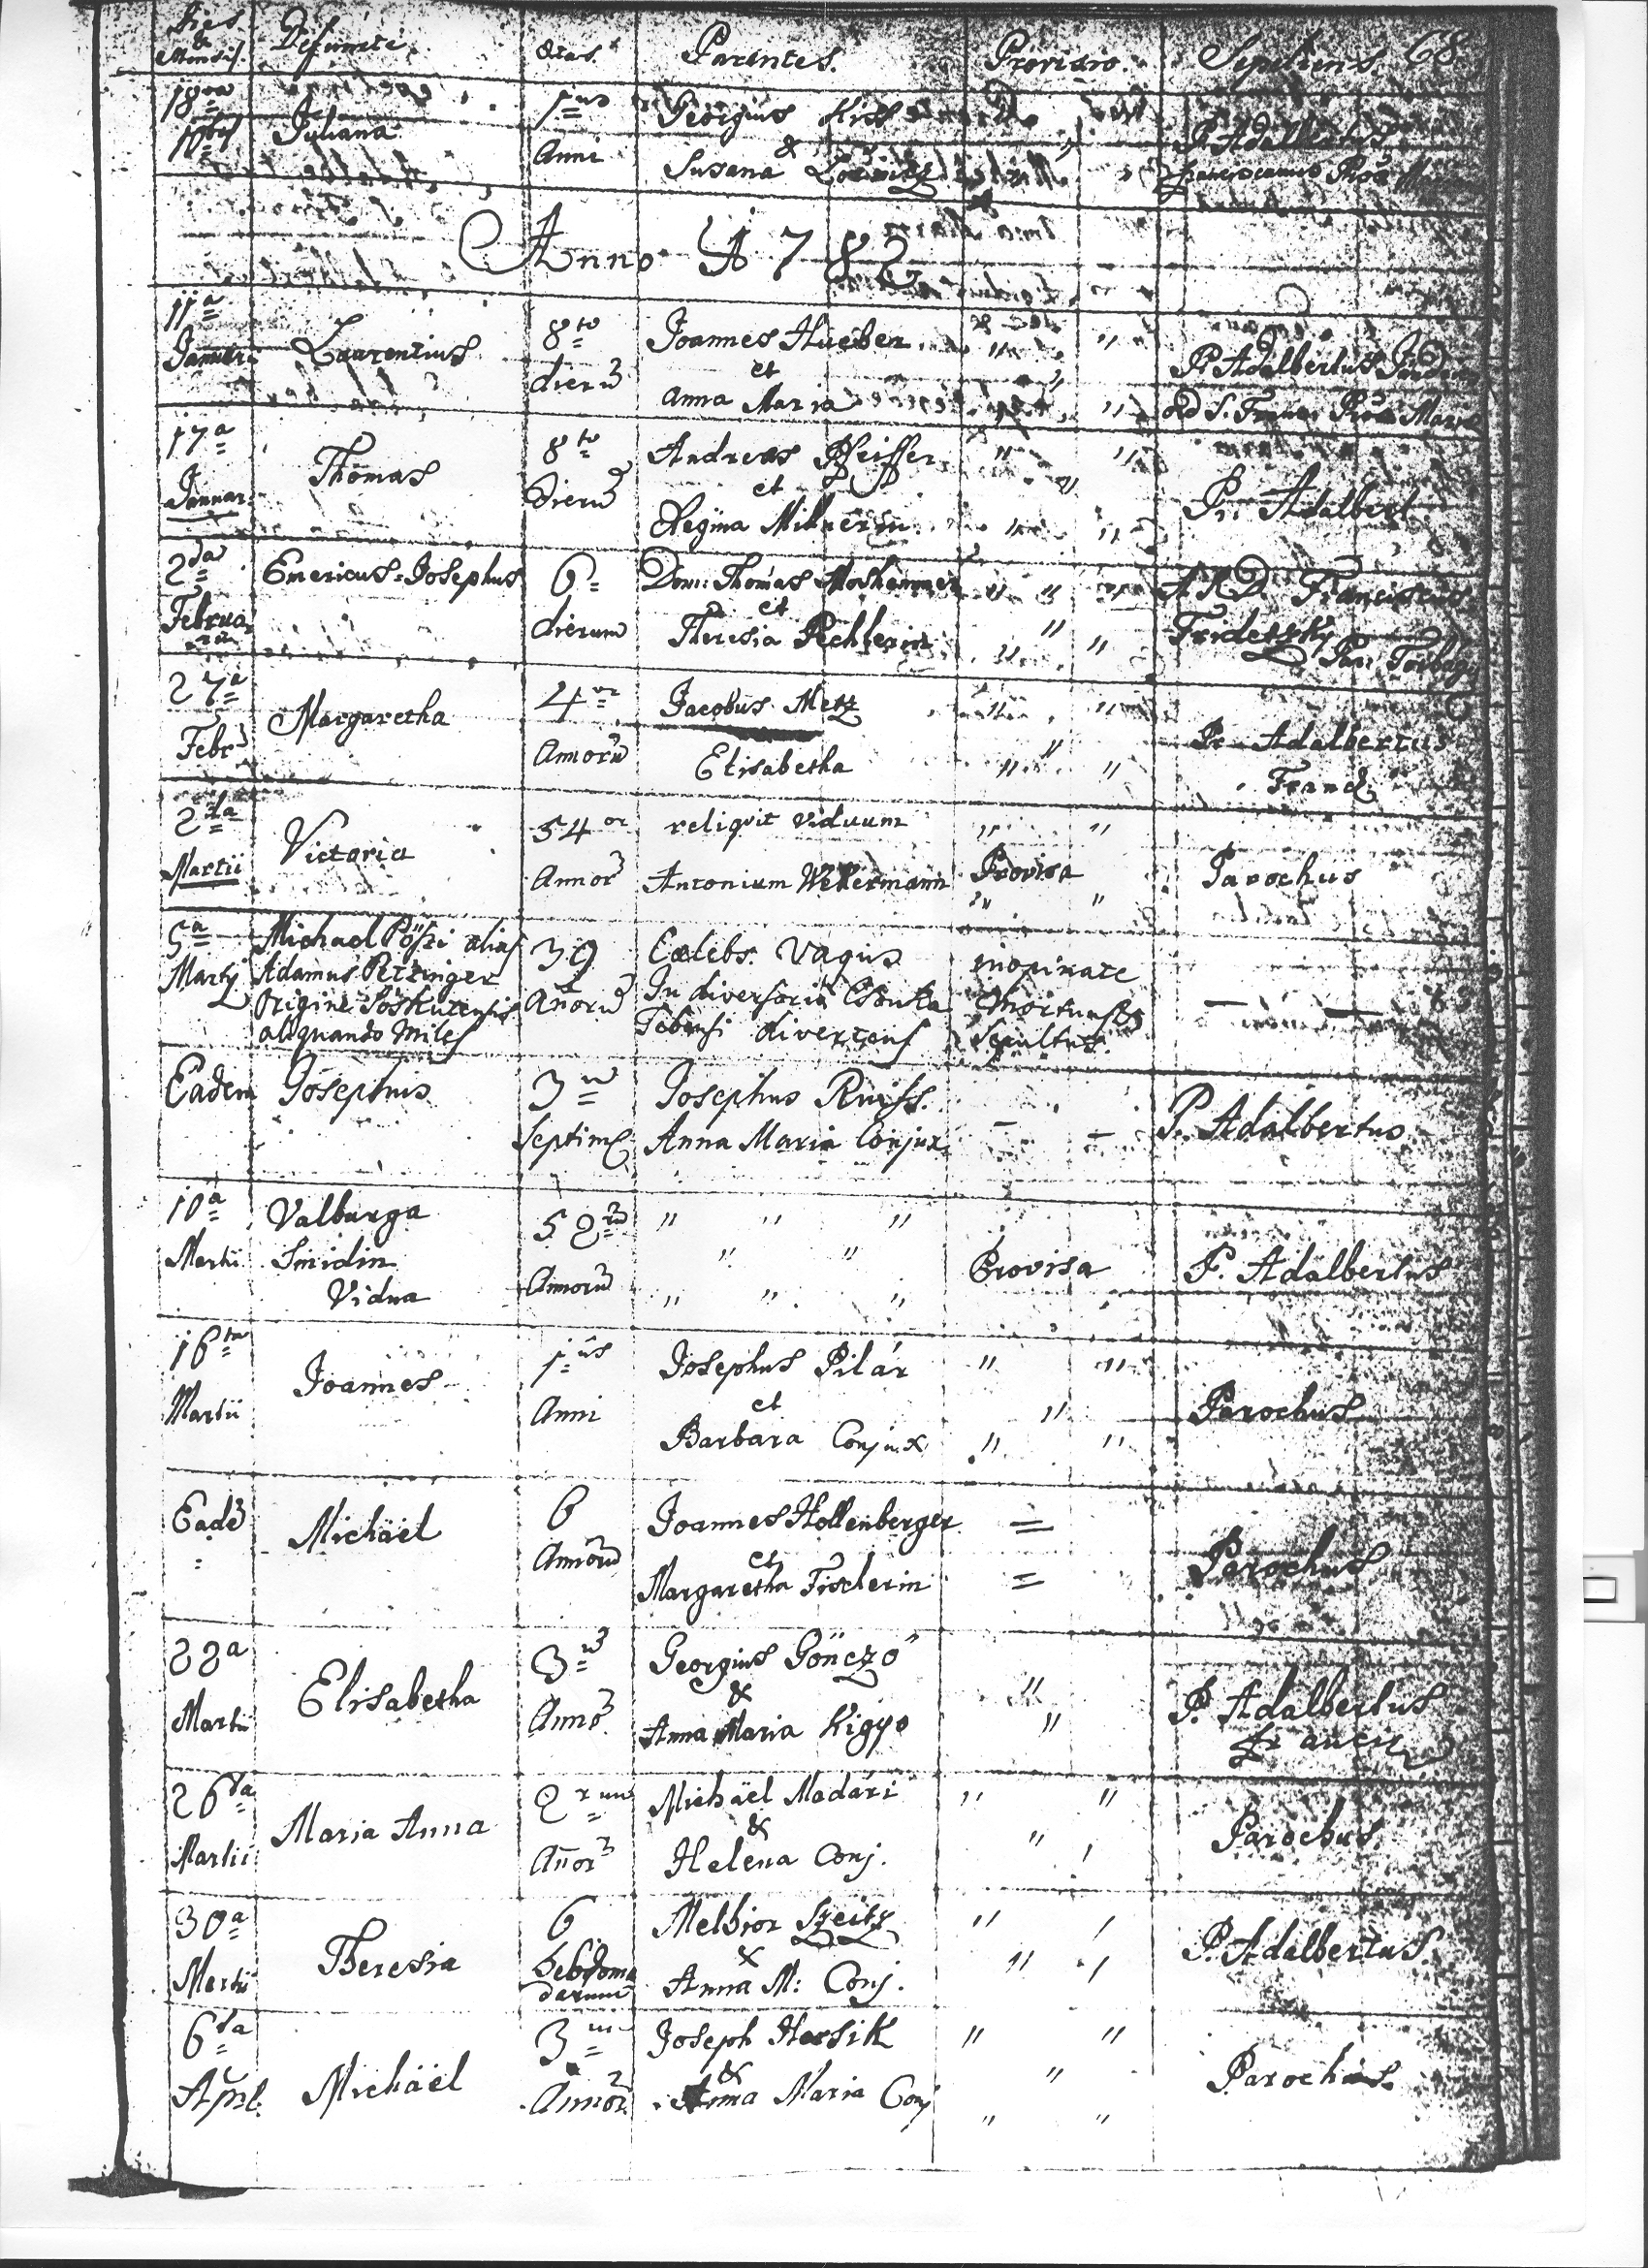 Dies & Mensis. Defuncti Ætas. Parentes. Provisio. Sepeliens. 68.
18va 10bris Juliana 1us Anni Georgius Kiss & Susana P. Adalbertus Franciscanus
Anno 1782
11a Januarii Laurentius 8to dierum Joannes Hueber et Anna Maria " " P. Adalbertus Ord S. Franc.
17a Januar. Thomas 8to Dierum Andreas Pfeiffer et Regina Milnerin " " P. Adalbert
2da Februarii Emericus Josephus 6 dierum Dom: Thomas et Theresia Pechlerin " " A.R.D. Franciscus Fridetzky Par: Torbagy
27a Febr Margaretha 4or Annorum Jacobus Metz Elisabetha " " P. Adalbertus Franc.
2da Martii Victoria 54or Annor reliqvit viduum Antonium Wekermann Provisa Parochus
5a Martij Michael Pöszi alias
Adamus Petzinger
Origine Soskutensis
aliquando Miles
39 Añorum
Cælebs. Vagus
In diversorio
divertens
inopinate
Mortuus et
Sepultus.
Eadem Josephus 3um Septim Josephus Rueff. Anna Maria Conjux – – P. Adalbertus
10a Martii Valburga
Smidin
Vidua
52 Annorum " " " Provisa P. Adalbertus
16ta Martii Joannes 1us Anni Josephus Pilár et Barbara Conjux " " Parochus
Eadē Michäel 6 Annorum Joannes Hollenberger et Margaretha Fischerin = = Parochus
22a Martii Elisabetha 3um Anno. Georgius Gönczö & Anna Maria Kigyo " " P. Adalbertus Francisc
26ta Martii Maria Anna 2rum Añor Michäel Madári & Helena Conj. " " Parochus.
30a Martii Theresia 6 hebdomadarum Melhior Szeitz & Anna M: Conj. " " P. Adalbertus.
6ta Apríl. Michäel 3um Annor. Joseph Hersik & Anna Maria Conj " " Parochus.